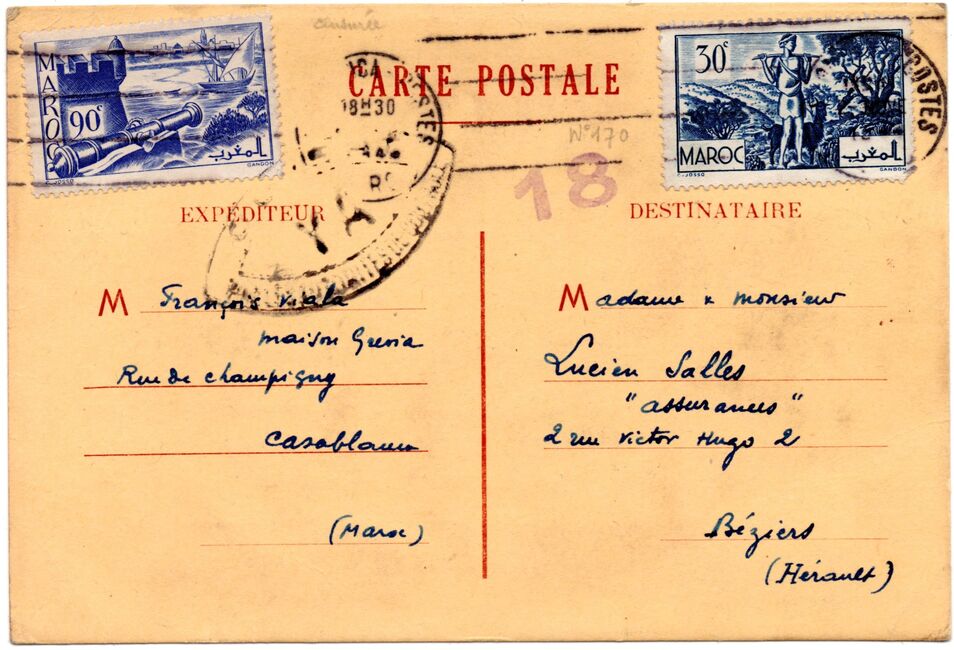 censurée
MAROC
90c
المغرب
C. JOSSO
GANDON
CARTE POSTALE
18H30
POSTES
N°170
18
30c
MAROC
المغرب
C. JOSSO
GANDON
POSTES
EXPÉDITEUR
M François Viala
maison Grevia
Rue de champigny
Casablanca
(Maroc)
DESTINATAIRE
Madame & monsieur
Lucien Salles
"assurances"
2 rue Victor Hugo 2
Béziers
(Hérault)